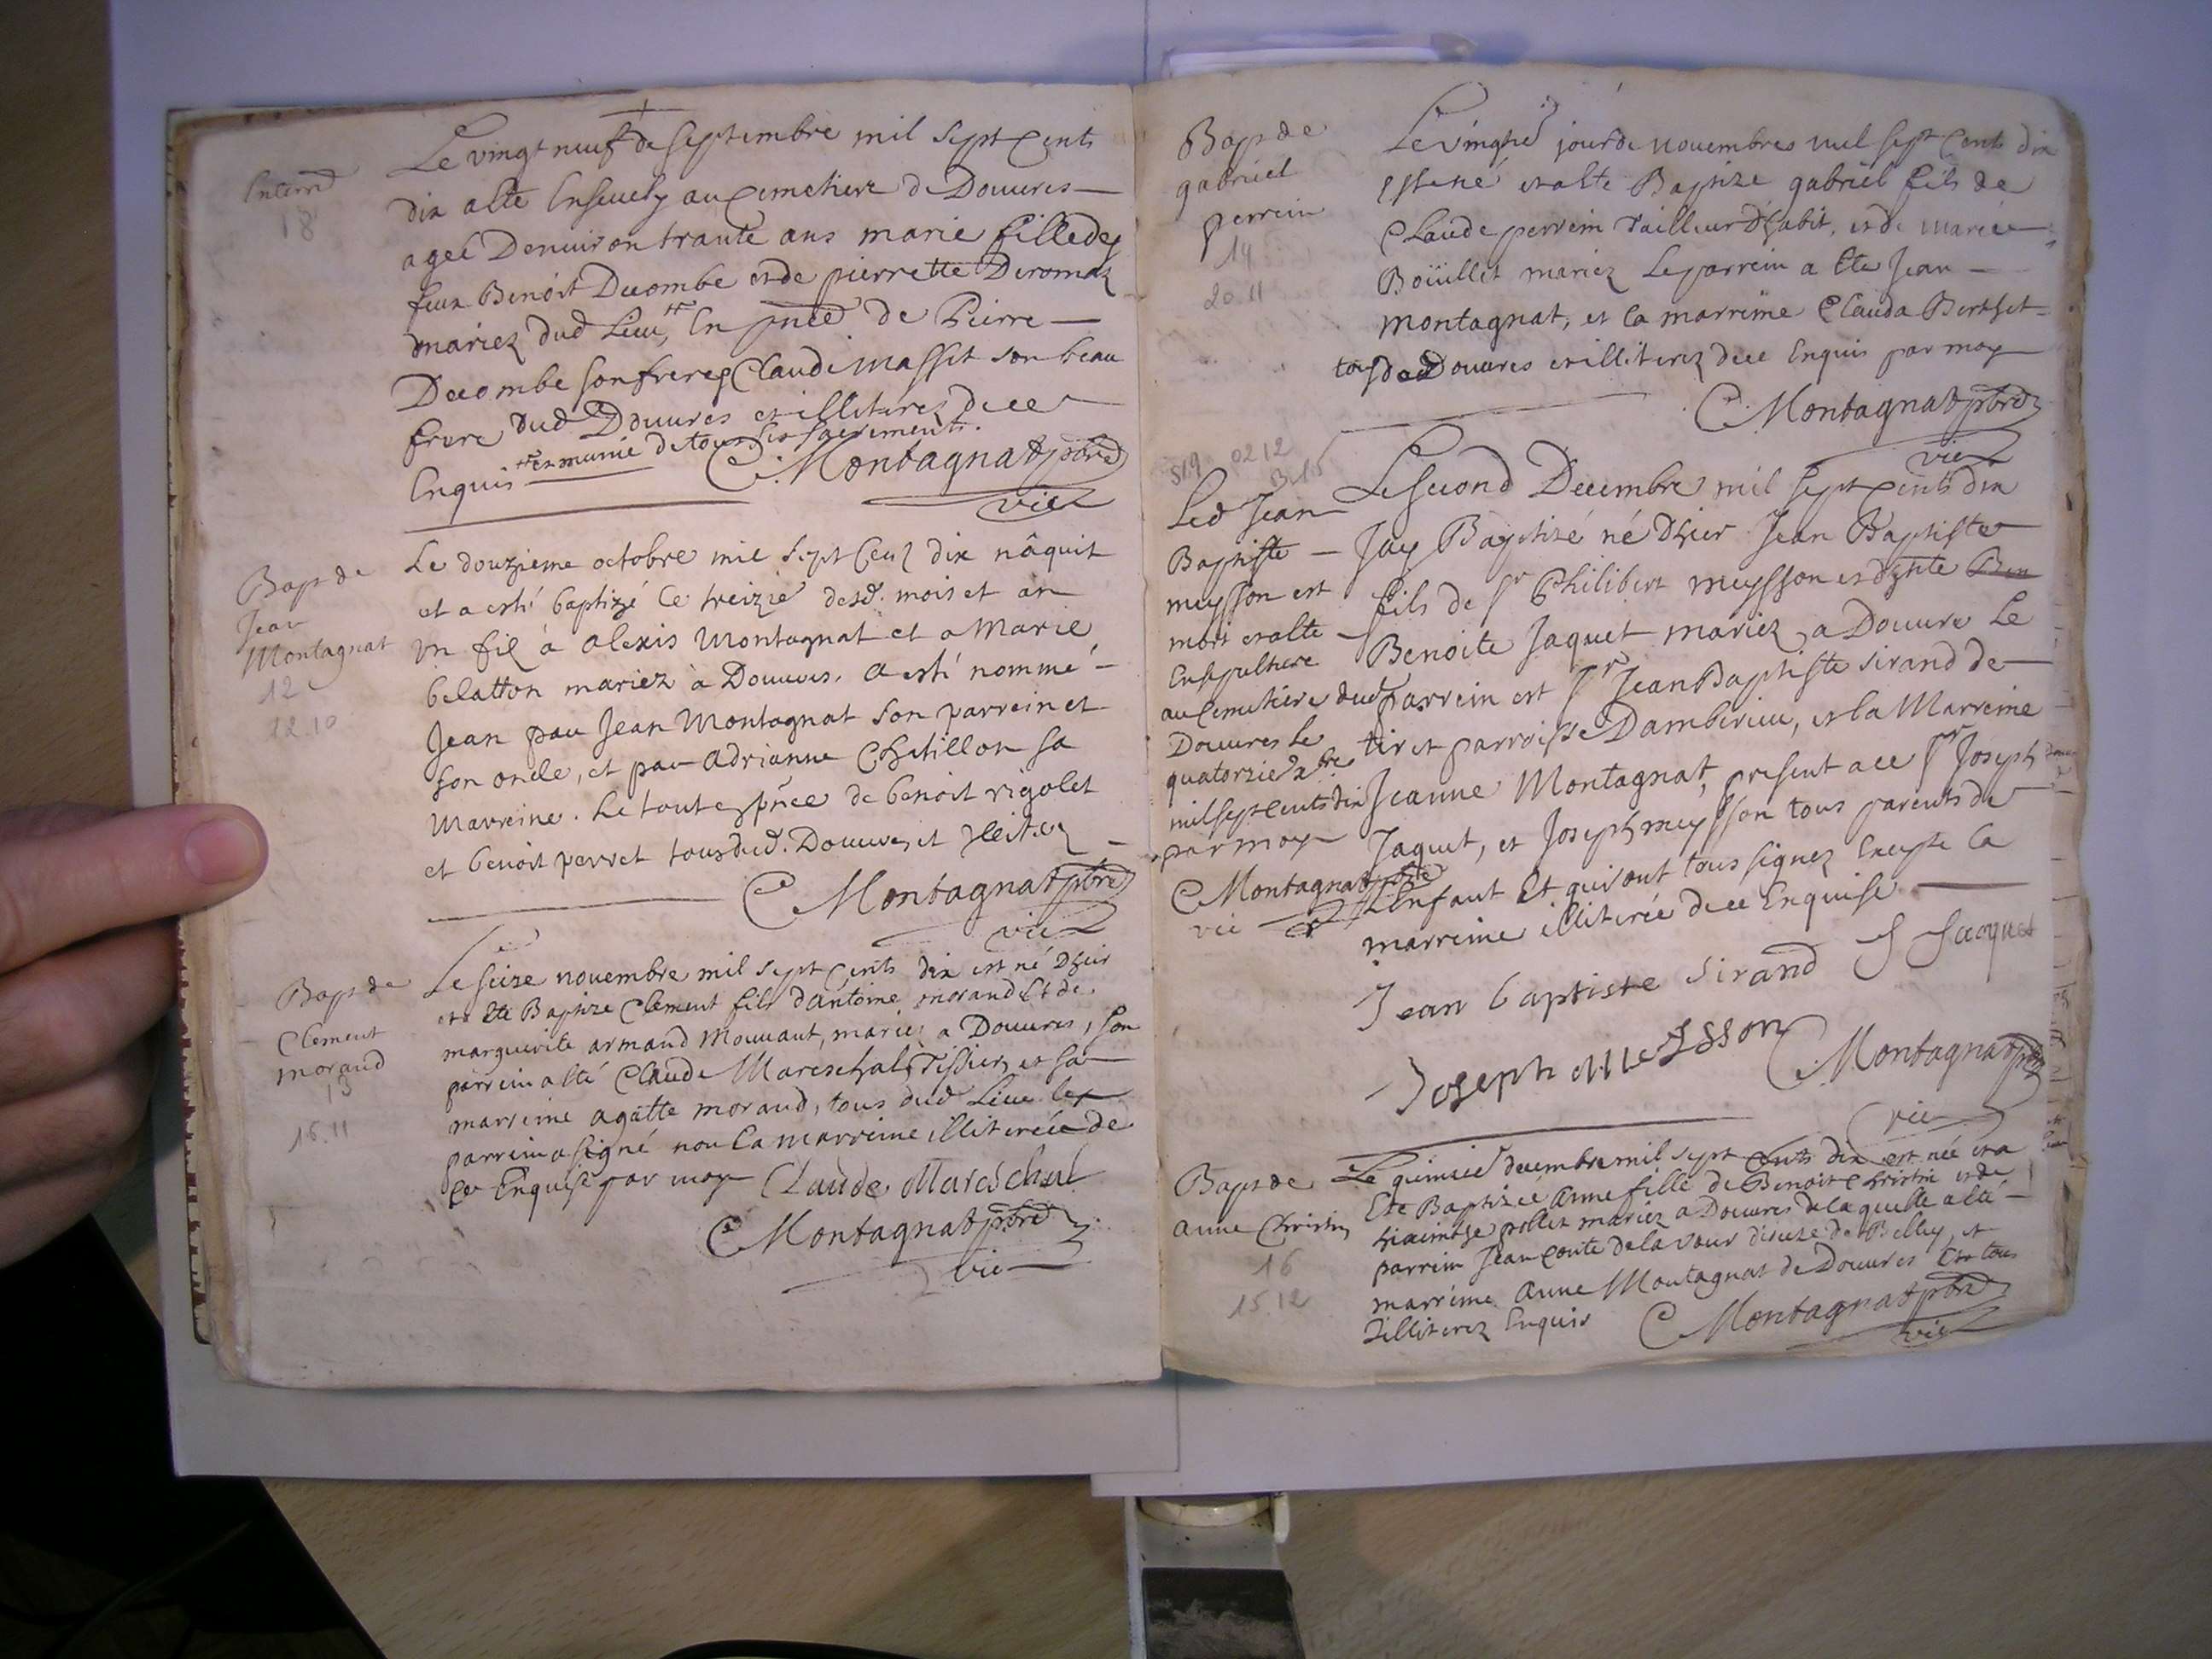 Enterré
18
Le vingt neuf de septembre mil sept cents
dix a esté ensevely au cemetiere de Douures
ageé denuiron trante ans marie fille de
feux Benoit Decombe et de pierrette Deromaz
mariez dud Lieu, en pnce de Pierre
Decombe son frere Claude masset son beau
frere dud Douures et illiterez de ce
Enquis et munie de tous les sacrements.
C. Montagnat pbre
vic
Bapt de
Jean
Montagnat
12
12.10
Le douzieme octobre mil sept cens dix nâquit
et a esté baptizé le treizie desd. mois et an
un fils à Alexis Montagnat et a Marie
belatton mariez à Douures. a esté nommé
Jean par Jean Montagnat son parrein et
son oncle, et par Adrianne Chatillon sa
Marreine. Le tout e pnce de benoit rigolet
et benoit perret tous dud. Douures, et illiterez
C Montagnat pbre
vic
Bapt de
Clement
morand
13
16.11
Le seize novembre mil sept cents dix est né Dhier
et a Eté Baptize Clement fils d'antoine morand Et de
marguerite armand Mouuant, mariez a Douures, son
parrein a Eté Claude Mareschal Tissier, et sa
marreine agatte morand, tous dud Lieu le
parrein a signé non la marreine illiterée de
ce Enquise par moy Claude Mareschal
C Montagnat pbre
vic
Bapt de
gabriel
perrein
14
20.11
Le vingtie jour de novembre mil sept cents dix
est né et a esté Baptize gabriel fils de
Claude perrein tailleur d'habit, et de mariee
Boüillet mariez Le parrein a Eté Jean
Montagnat, et la marreine Clauda Berthet
tous de Douures et illiterez de ce Enquis par moy
C. Montagnat pbre
vic
S19 02 12
3.15
Led Jean
Baptiste
meysson est
mort et a Eté
Ensepulturé
au Cemetiere dud
Douures le
quatorzie xbre
mil sept cents dix
par moy
C Montagnat pbre
vic
Le second Decembre mil sept cents dix
Jay Baptizé né Dhier Jean Baptiste
fils de Sr Philibert meysson et d'hnte Ben
Benoite Jaquet mariez a Douure Le
parrein est Sr Jean Baptiste sirand de
tiret parroisse Damberieu, et la Marreine
Jeanne Montagnat, present a ce Sr Joseph
Jaquet, et Joseph meysson tous parents de
L'Enfant Et qui ont tous signez Excepte la
marreine illiterée de ce Enquise
Jean baptiste sirand J Jacquet
Joseph Meysson C Montagnat pbre
vic
Bapt de
anne Christin
16
15.12
Le quinzie decembre mil sept cents dix est née et a
Eté Baptizeé Anne fille de Benoit Christin et de
hiacinthe pollet mariez a Douures de laquelle a eté
parrein Jean conte de la vour dioceze de Belley, et
marreine Anne Montagnat de Douures Et tous
illiterez Enquis C Montagnat pbre
vic